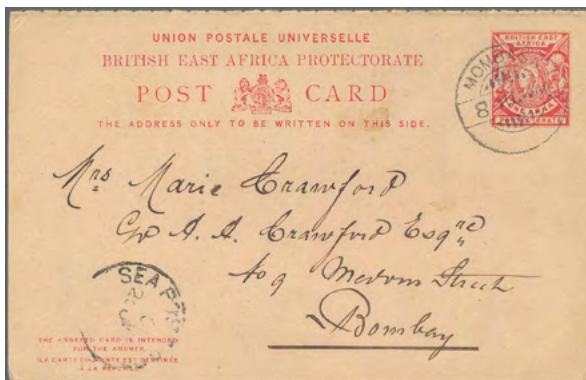 UNION POSTALE UNIVERSELLE
BRITISH EAST AFRICA PROTECTORATE
POST CARD
THE ADDRESS ONLY TO BE WRITTEN ON THIS SIDE.
BRITISH EAST AFRICA
ONE ANNA
PROTECTORATE
B
Mrs Marie Crawford
C/o A. A. Crawford Esqre
Street
Bombay
SEA P
THE ANNEXED CARD IS INTENDED
FOR THE ANSWER.
(LA CARTE CI-JOINTE EST DESTINÉE
À LA RÉPONSE)